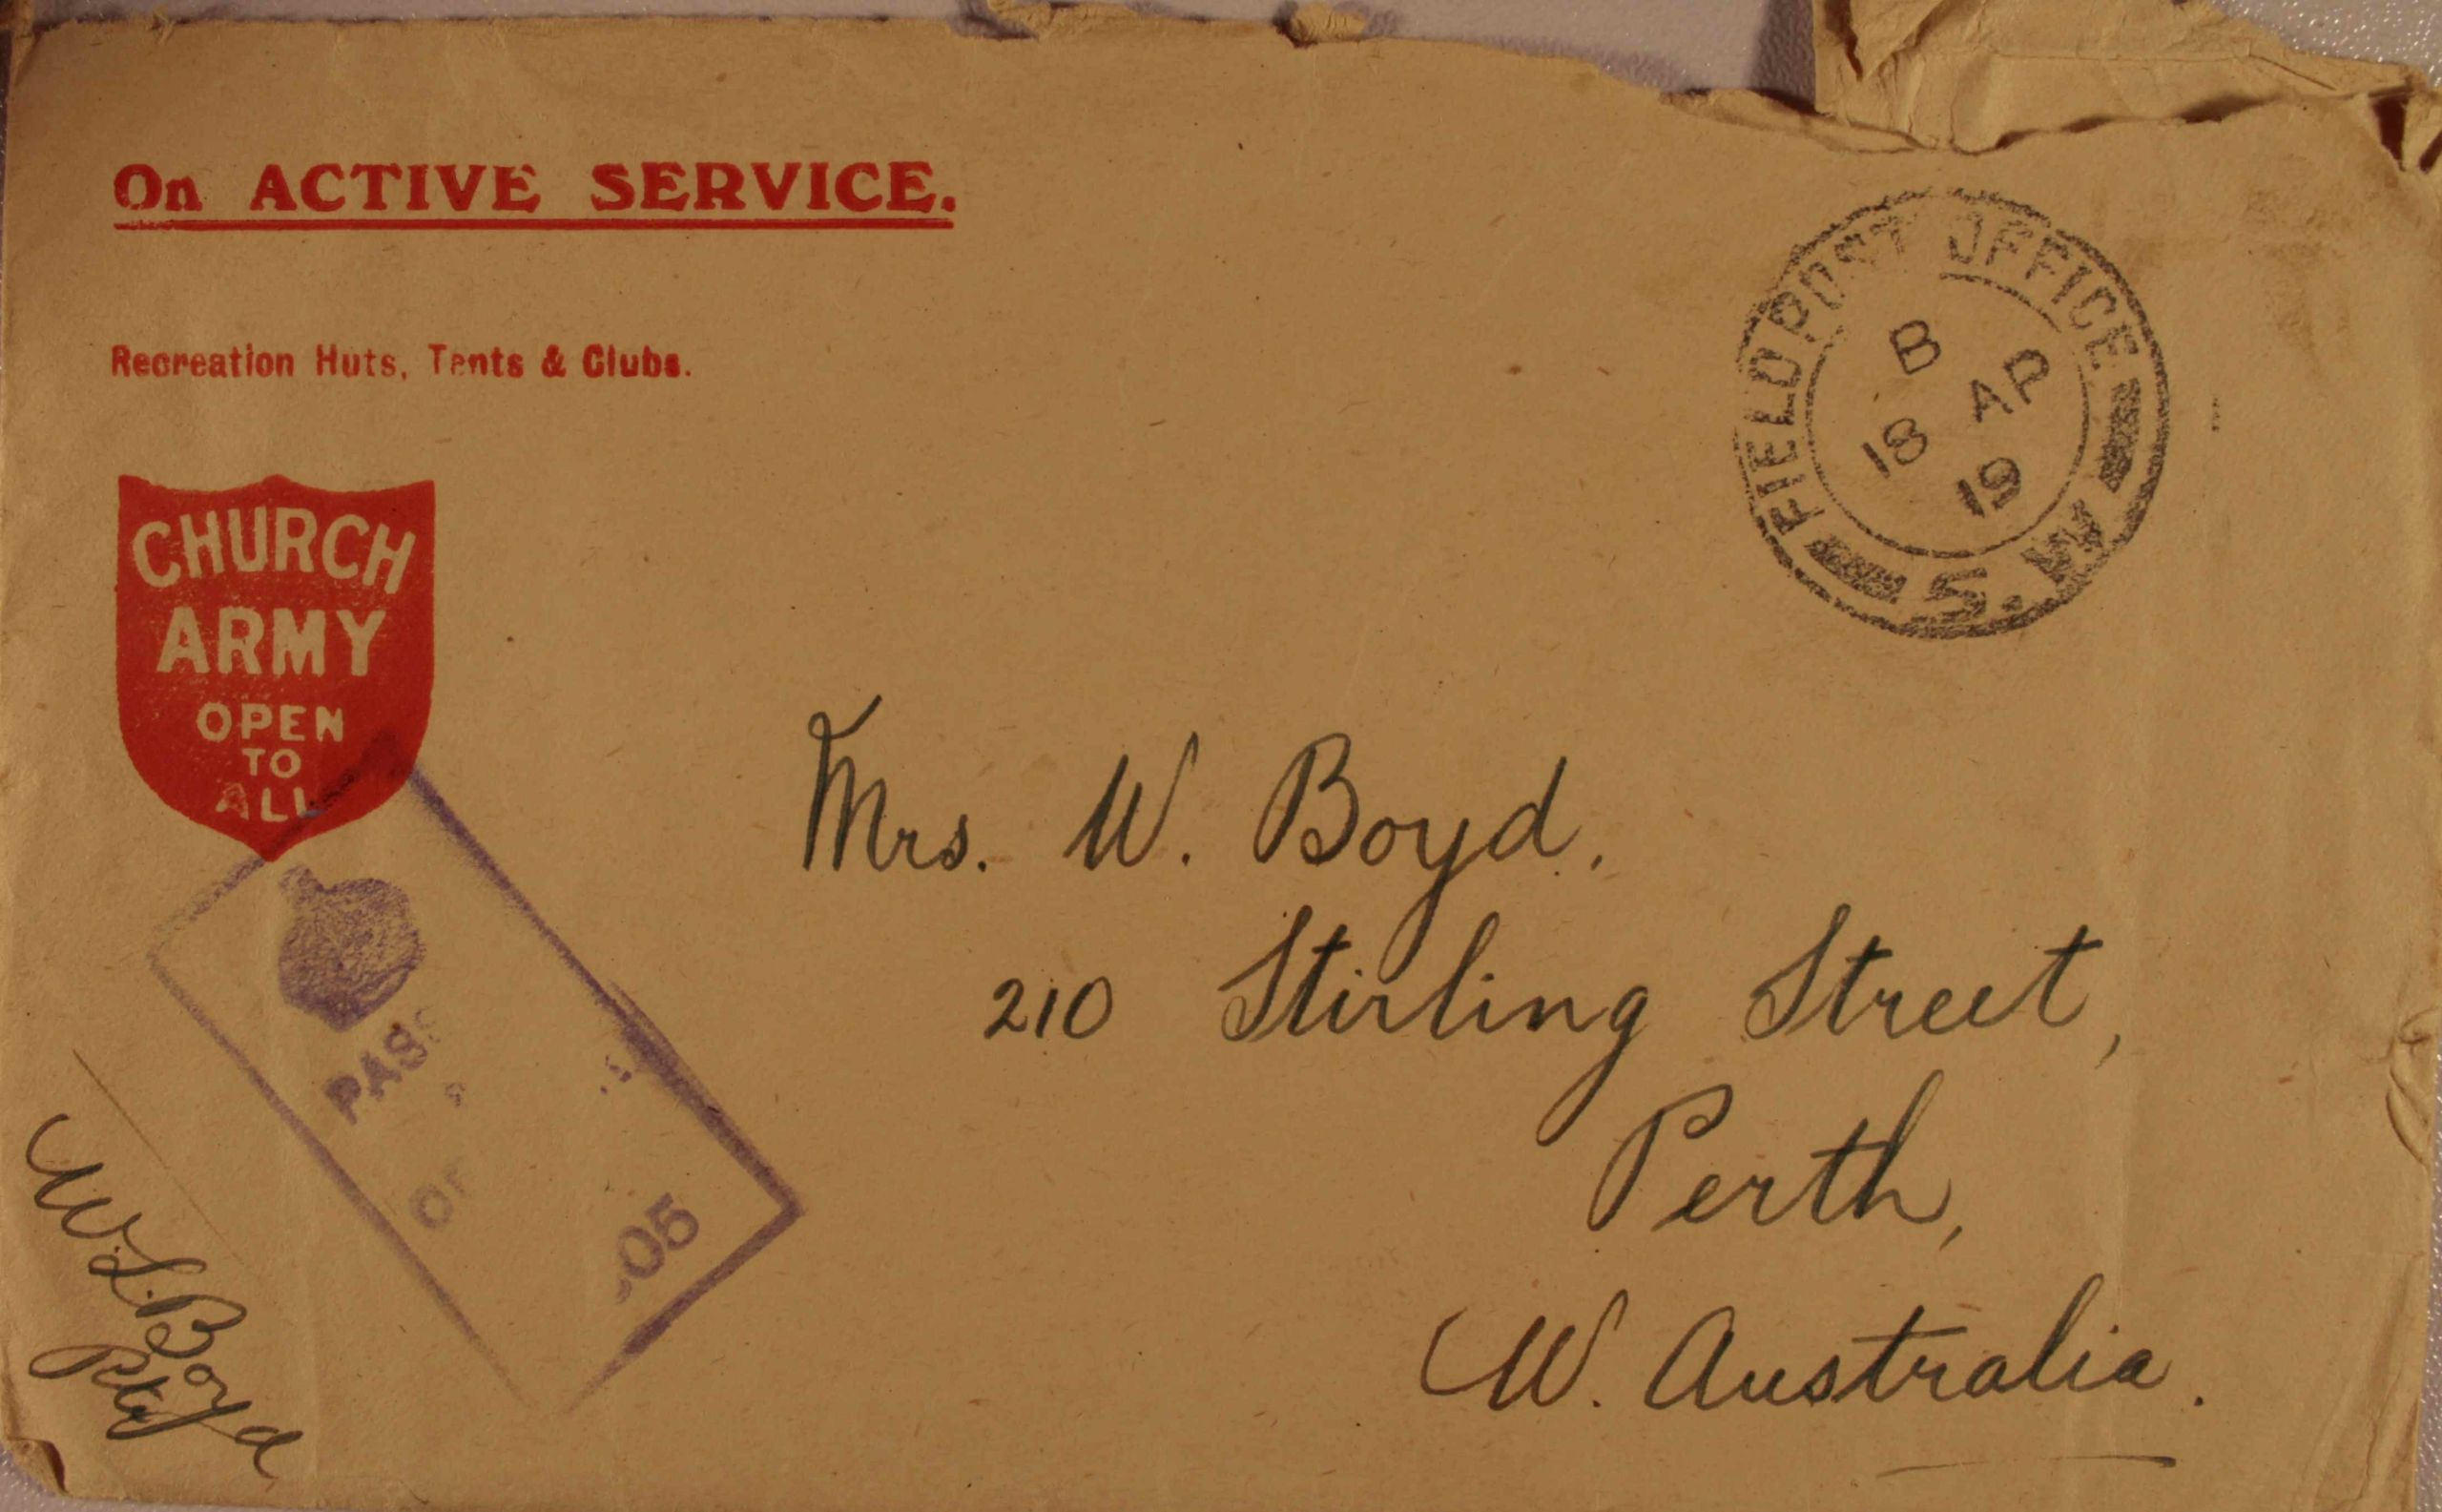 On ACTIVE SERVICE.
Recreation Huts, Tents & Clubs.
CHURCH
ARMY
OPEN
TO
ALL
FIELD POST OFFICE
B
18 AP
19
Mrs. W. Boyd.
210 Stirling Street,
Perth,
W. Australia.
05
W.L. Boyd
Pte